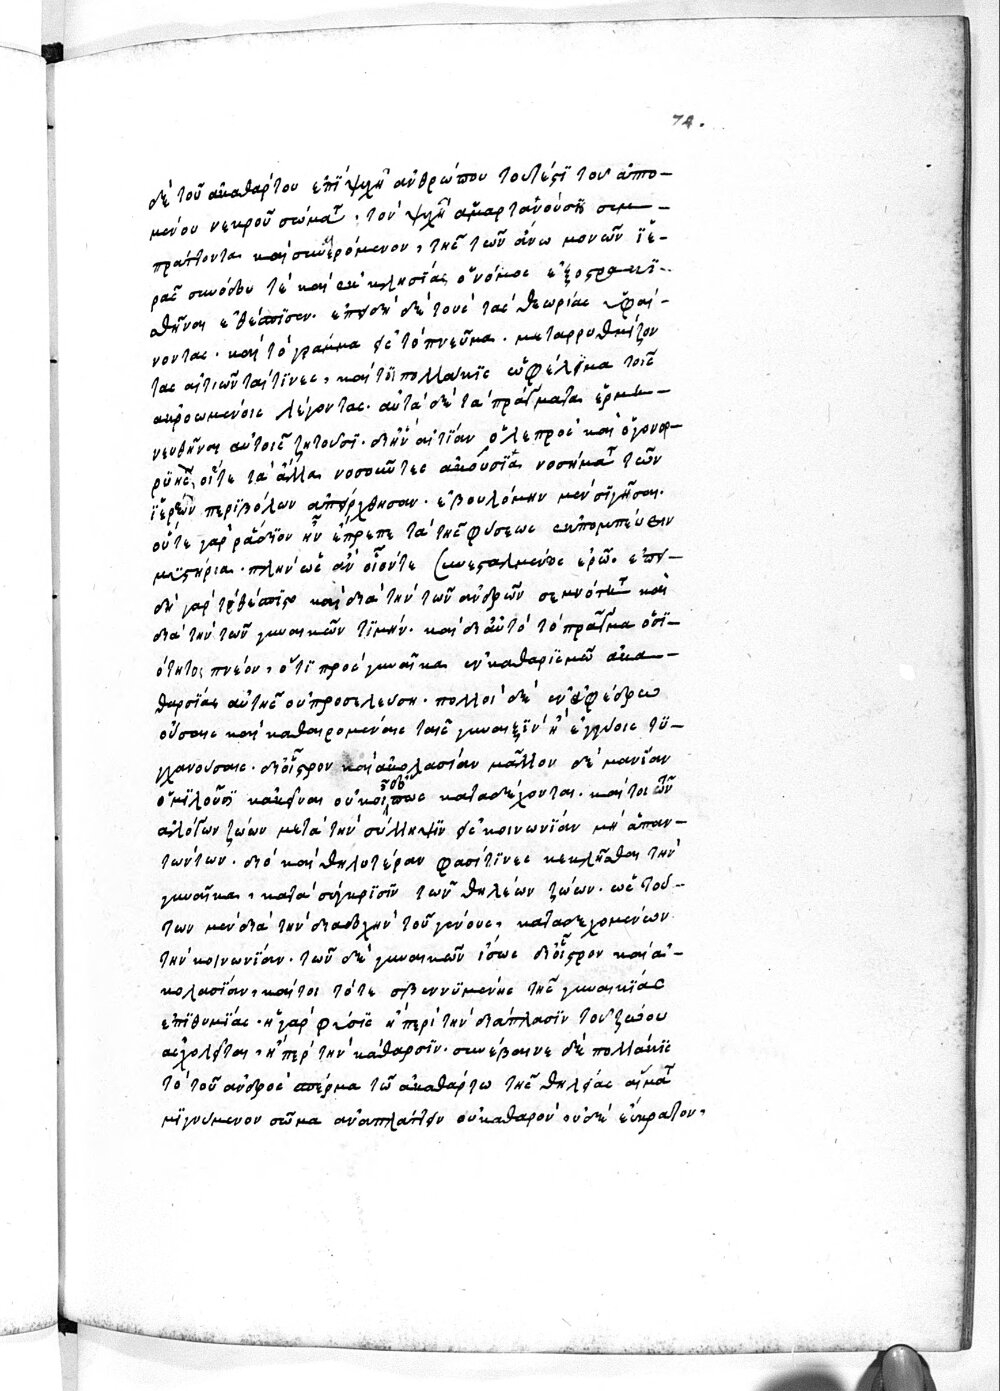 74.
δὲ τοῦ ἀκαθάρτου ἐπὶ ψυχῆ ἀνθρώπου τουτέστι τοῦ ἁπτο-
μένου νεκροῦ σώματος· τὸν ψυχῆ ἁμαρτανούση συμ-
πράττοντα καὶ συμφερόμενον, τῆς τῶν ἄνω μονῶν ἱε-
ρᾶς συνόδου τὲ καὶ ἐκκλησίας ὁ νόμος ἐξοστρακι-
θῆναι ἐθέσπισεν. ἐπειδὴ δὲ τοὺς τὰς θεωρίας
νοντας· καὶ τὸ γράμμα εἰς τὸ πνεῦμα μεταρρυθμίζον
τας αἰτιῶνταί τινες, καί τοι πολλάκις ὠφέλιμα τοῖς
ἀκροωμένοις λέγοντας· αὐτὰ δὲ τὰ πράγματα ἑρμη-
νευθῆναι αὐτοῖς ζητοῦσι· δι' ἣν αἰτίαν ὁ λεπρὸς καὶ ὁ γονορ-
ρυὴς, οἵτε τὰ ἄλλα νοσοῦντες ἀκούσια νοσήματα τῶν
ἱερῶν περιβόλων ἀπείρχθησαν· ἐβουλόμην μὲν σιγῆσαι.
οὔτε γὰρ ῥάδιον ἦν ἔπρεπε τὰ τῆς φύσεως ἐκπομπεύειν
μυστήρια· πλὴν ὡς ἂν οἷόν τε συνεσταλμένως ἐρῶ. ἐπει-
δὴ γὰρ καὶ διὰ τὴν τῶν ἀνδρῶν σεμνότητα καὶ
διὰ τὴν τῶν γυναικῶν τιμήν· καὶ δι' αὐτὸ τὸ πρᾶγμα ὁσι-
ότητος πνέον, ὅτι πρὸς γυναῖκα ἐν καθαρισμῶ ἀκα-
θαρσίας αὐτῆς οὐ προσελεύση· πολλοὶ δὲ ἐν ἀφέδρω
οὔσαις καὶ καθαιρομέναις ταῖς γυναιξὶν ἢ ἐγγύοις τυ-
γχανούσαις· δι' οἶστρον καὶ ἀκολασίαν μᾶλλον δὲ μανίαν
ὁμιλοῦσι κἀκεῖναι οὐκ οἶδ' ὅπως καταδέχονται· καί τοι τῶν
ἀλόγων ζώων μετὰ τὴν σύλληψιν εἰς κοινωνίαν μὴ ἀπαν-
τώντων· διὸ καὶ θηλυτέραν φασί τινες κεκλῆσθαι τὴν
γυναῖκα, κατὰ σύγκρισιν τῶν θηλέων ζώων· ὡς τού-
των μὲν διὰ τὴν διαδοχὴν τοῦ γένους, καταδεχομένων
τὴν κοινωνίαν· τῶν δὲ γυναικῶν ἴσως δι' οἶστρον καὶ ἀ-
κολασίαν, καί τοι τότε σβεννυμένης τῆς γυναικίας
ἐπιθυμίας· ἡ γὰρ φύσις ἢ περὶ τὴν διάπλασιν τοῦ ζώου
ἀσχολεῖται, ἢ περὶ τὴν κάθαρσιν· συνέβαινε δὲ πολλάκις
τὸ τοῦ ἀνδρὸς σπέρμα τῶ ἀκαθάρτω τῆς θηλείας αἵματι
μιγνύμενον σῶμα ἀναπλάττειν οὐ καθαρὸν οὐδὲ εὔκρατον,